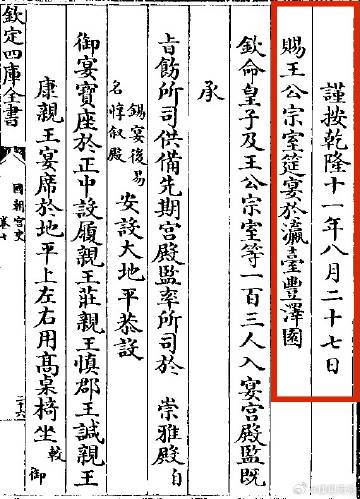 謹按乾隆十一年八月二十七日
賜王公宗室筵宴於瀛臺豐澤園
欽命皇子及王公宗室等一百三人入宴宮殿監既
承
旨飭所司供備先期宮殿監率所司於 崇雅殿自
錫宴後易名惇叙殿 安設大地平恭設
御宴寶座於正中設履親王莊親王慎郡王誠親王
康親王宴席於地平上左右用高桌椅坐較御
欽定四庫全書 國朝宮史 卷七